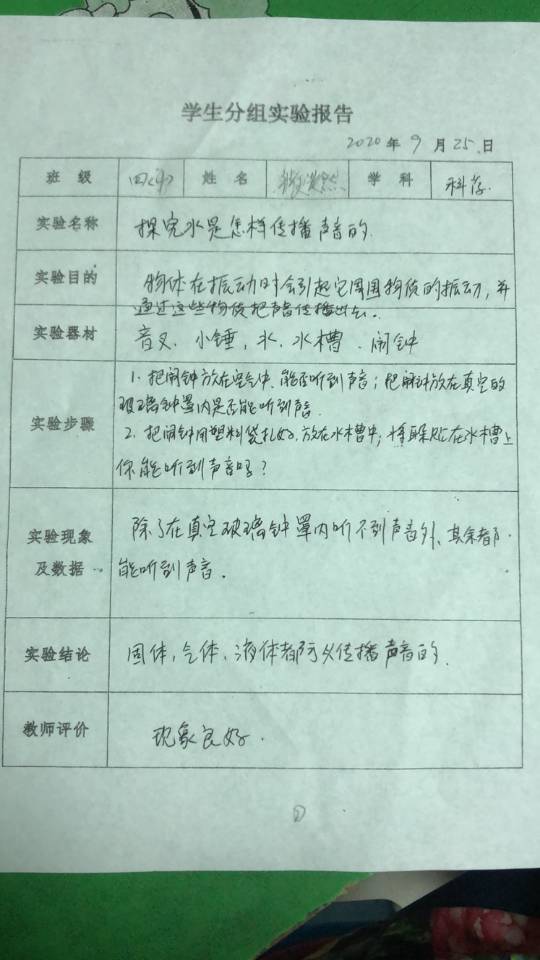 学生分组实验报告
2020年9月25日
班 级 四(4) 姓 名 学 科 科学.
实验名称 探究水是怎样传播声音的.
实验目的 物体在振动时会引起它周围物质的振动,并
通过这些物质把声音传播出去.
实验器材 音叉、小锤,水,水槽、闹钟
1.把闹钟放在空气中,能否听到声音;把闹钟放在真空的
玻璃钟罩内是否能听到声音.
实验步骤
2.把闹钟用塑料袋扎好,放在水槽中,将耳朵贴在水槽上
你能听到声音吗?
实验现象 除了在真空玻璃钟罩内听不到声音外、其余都
及数据 能听到声音.
实验结论 固体,气体、液体都可以传播声音的.
教师评价 现象良好.
②